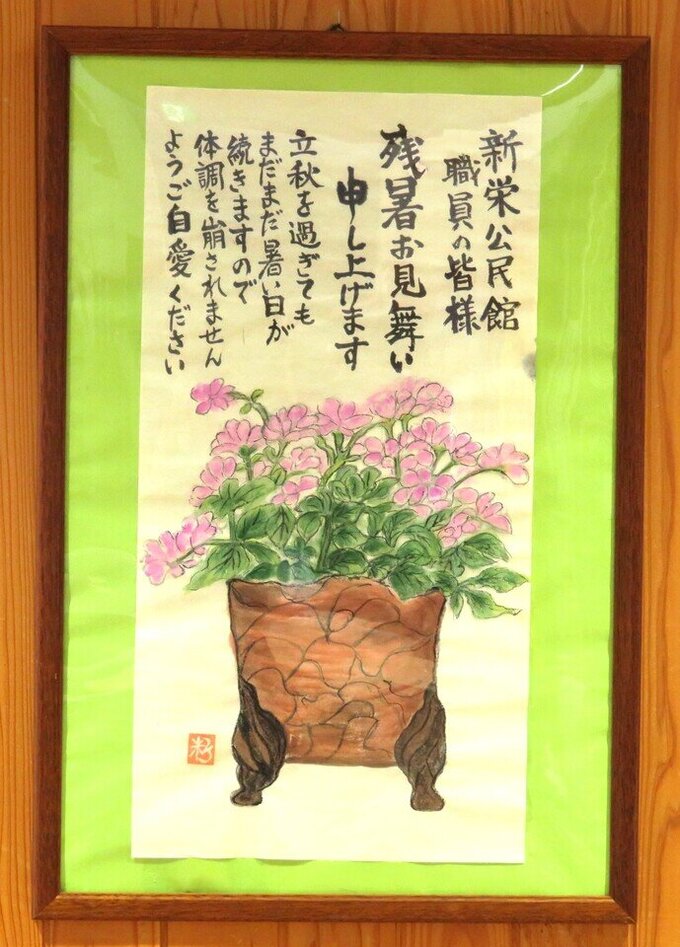 新栄公民館
職員の皆様
残暑お見舞い
申し上げます
立秋を過ぎても
まだまだ暑い日が
続きますので
体調を崩されません
ようご自愛ください